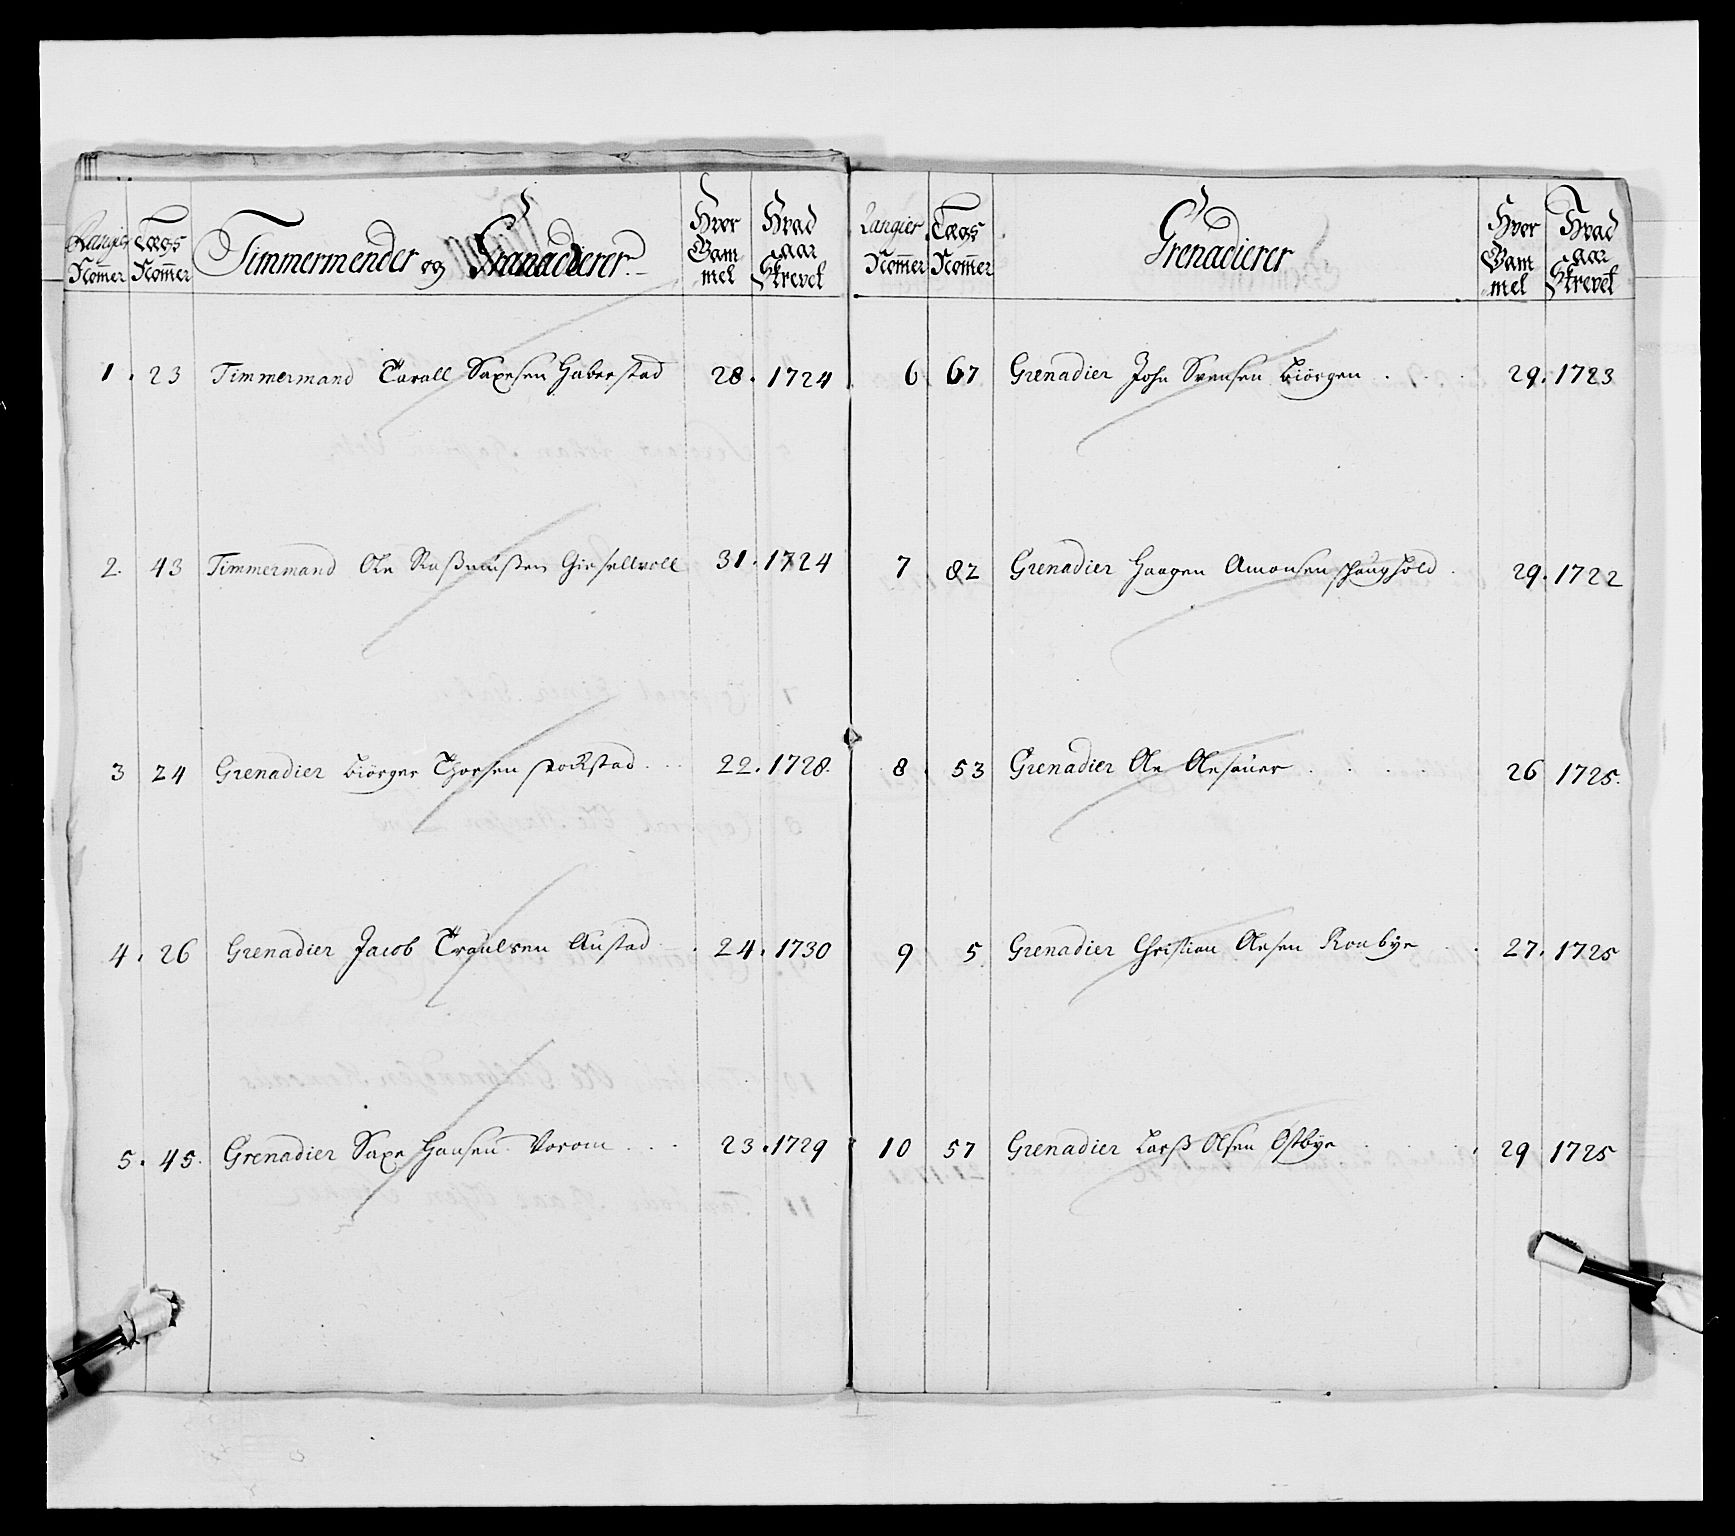 Rangier Nommer
Lægs Nommer
Timmermender og Granadierer
Hvor Gammel
Hvad aar Skrevet
1. 23 Timmermand Tarall Saxesen Haberstad 28. 1724
2. 43 Timmermand Ole Raßmußen Giefsellvoll 31. 1724
3 24 Grenadier Biörger Thorsen Stockstad 22. 1728.
4. 26 Grenadier Jacob Traulsen Austad 24. 1730
5. 45. Grenadier Saxe Hansen Vorom 23. 1729
Rangier Nommer
Lægs Nommer
Grenadierer
Hvor Gammel
Hvad aar Skrevet
6 67 Grenadier John Svensen Biörgen 29. 1723
7 82 Grenadier Haagen Amonsen 29. 1722
8 53 Grenadier Ole Olesøuer 26 1725.
9 5 Grenadier Christian Olesen Ronbye 27. 1725
10 57 Grenadier Larß Olsen Østbye 29 1725